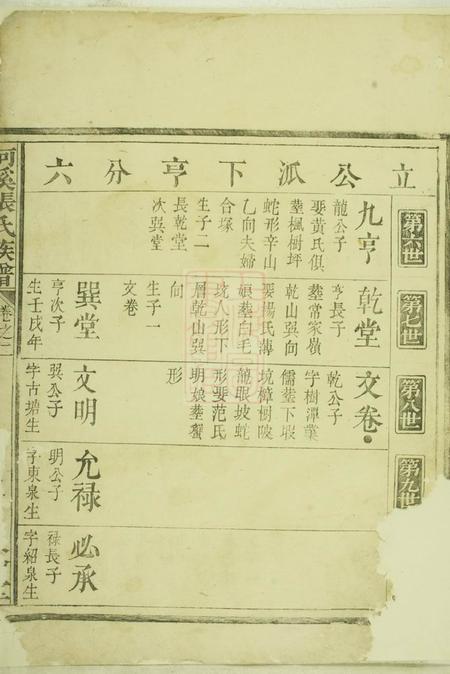 立公派下亨分六
第六世
第七世
第八世
第九世
九亨
龍公子
娶黃氏俱
塟楓樹坪
蛇形辛山
乙向夫婦
合塚
生子二
長乾堂
次巽堂
乾堂
亨長子
塟常家嶺
乾山巽向
娶楊氏溥
娘塟白毛
坑人形下
層乾山巽
向
生子一
文卷
文卷
乾公子
字樹潭業
儒塟下塅
境樟樹陂
龍眼坡蛇
形娶范氏
明娘塟蟹
形
巽堂
亨次子
生壬戌年
文明
巽公子
字古塘生
允祿
明公子
字東泉生
必承
祿長子
字紹泉生
河溪張氏族譜
卷之二